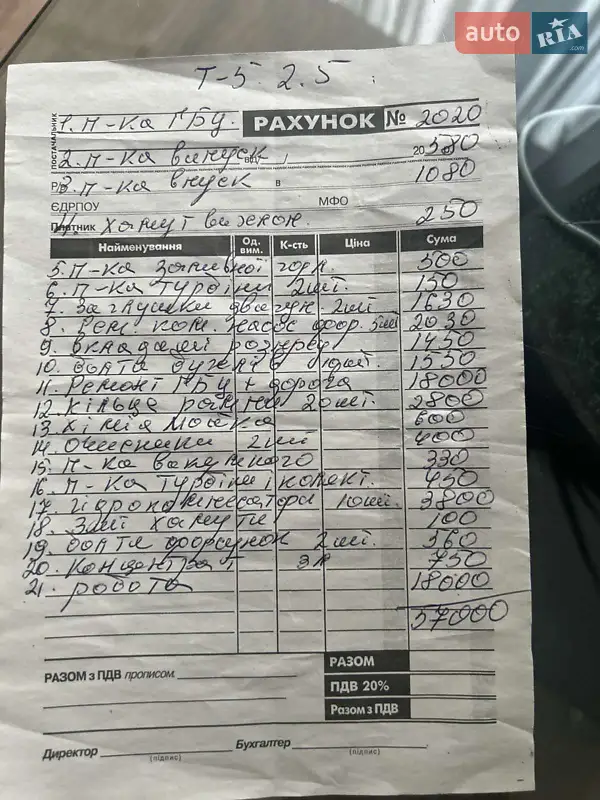 auto RIA .com
Т-5. 2.5
ПОСТАЧАЛЬНИК
1. П-ка ГБЦ. РАХУНОК № 2020
2. П-ка випуск від 20 580
Р/р 3. П-ка впуск в 1080
ЄДРПОУ МФО
Платник 4. хомут вихлоп. 250
Найменування Од. вим. К-сть Ціна Сума
5. П-ка заливної горл. 500
6. П-ка турбіни 2шт. 150
7. Заглушки двигун. 2шт 1630
8. Рем. ком. насос фор. 5шт 2030
9. вкладиші розперед 1450
10. болти бугелів 10шт. 1550
11. Ремонт ГБЦ + дорога 18000
12. кільця 20шт. 2800
13. хімія мойка 600
14. Очисники 2шт 400
15. П-ка вакумного 330
16. П-ка турбіни і колект. 450
17. гідрокомпесатори 10шт. 3800
18. Змі хомути 100
19. болти форсунок 2шт. 360
20. Концентрат 3л 750
21. робота 18000
57000
РАЗОМ з ПДВ прописом. РАЗОМ
ПДВ 20%
Разом з ПДВ
Директор (підпис) Бухгалтер (підпис)